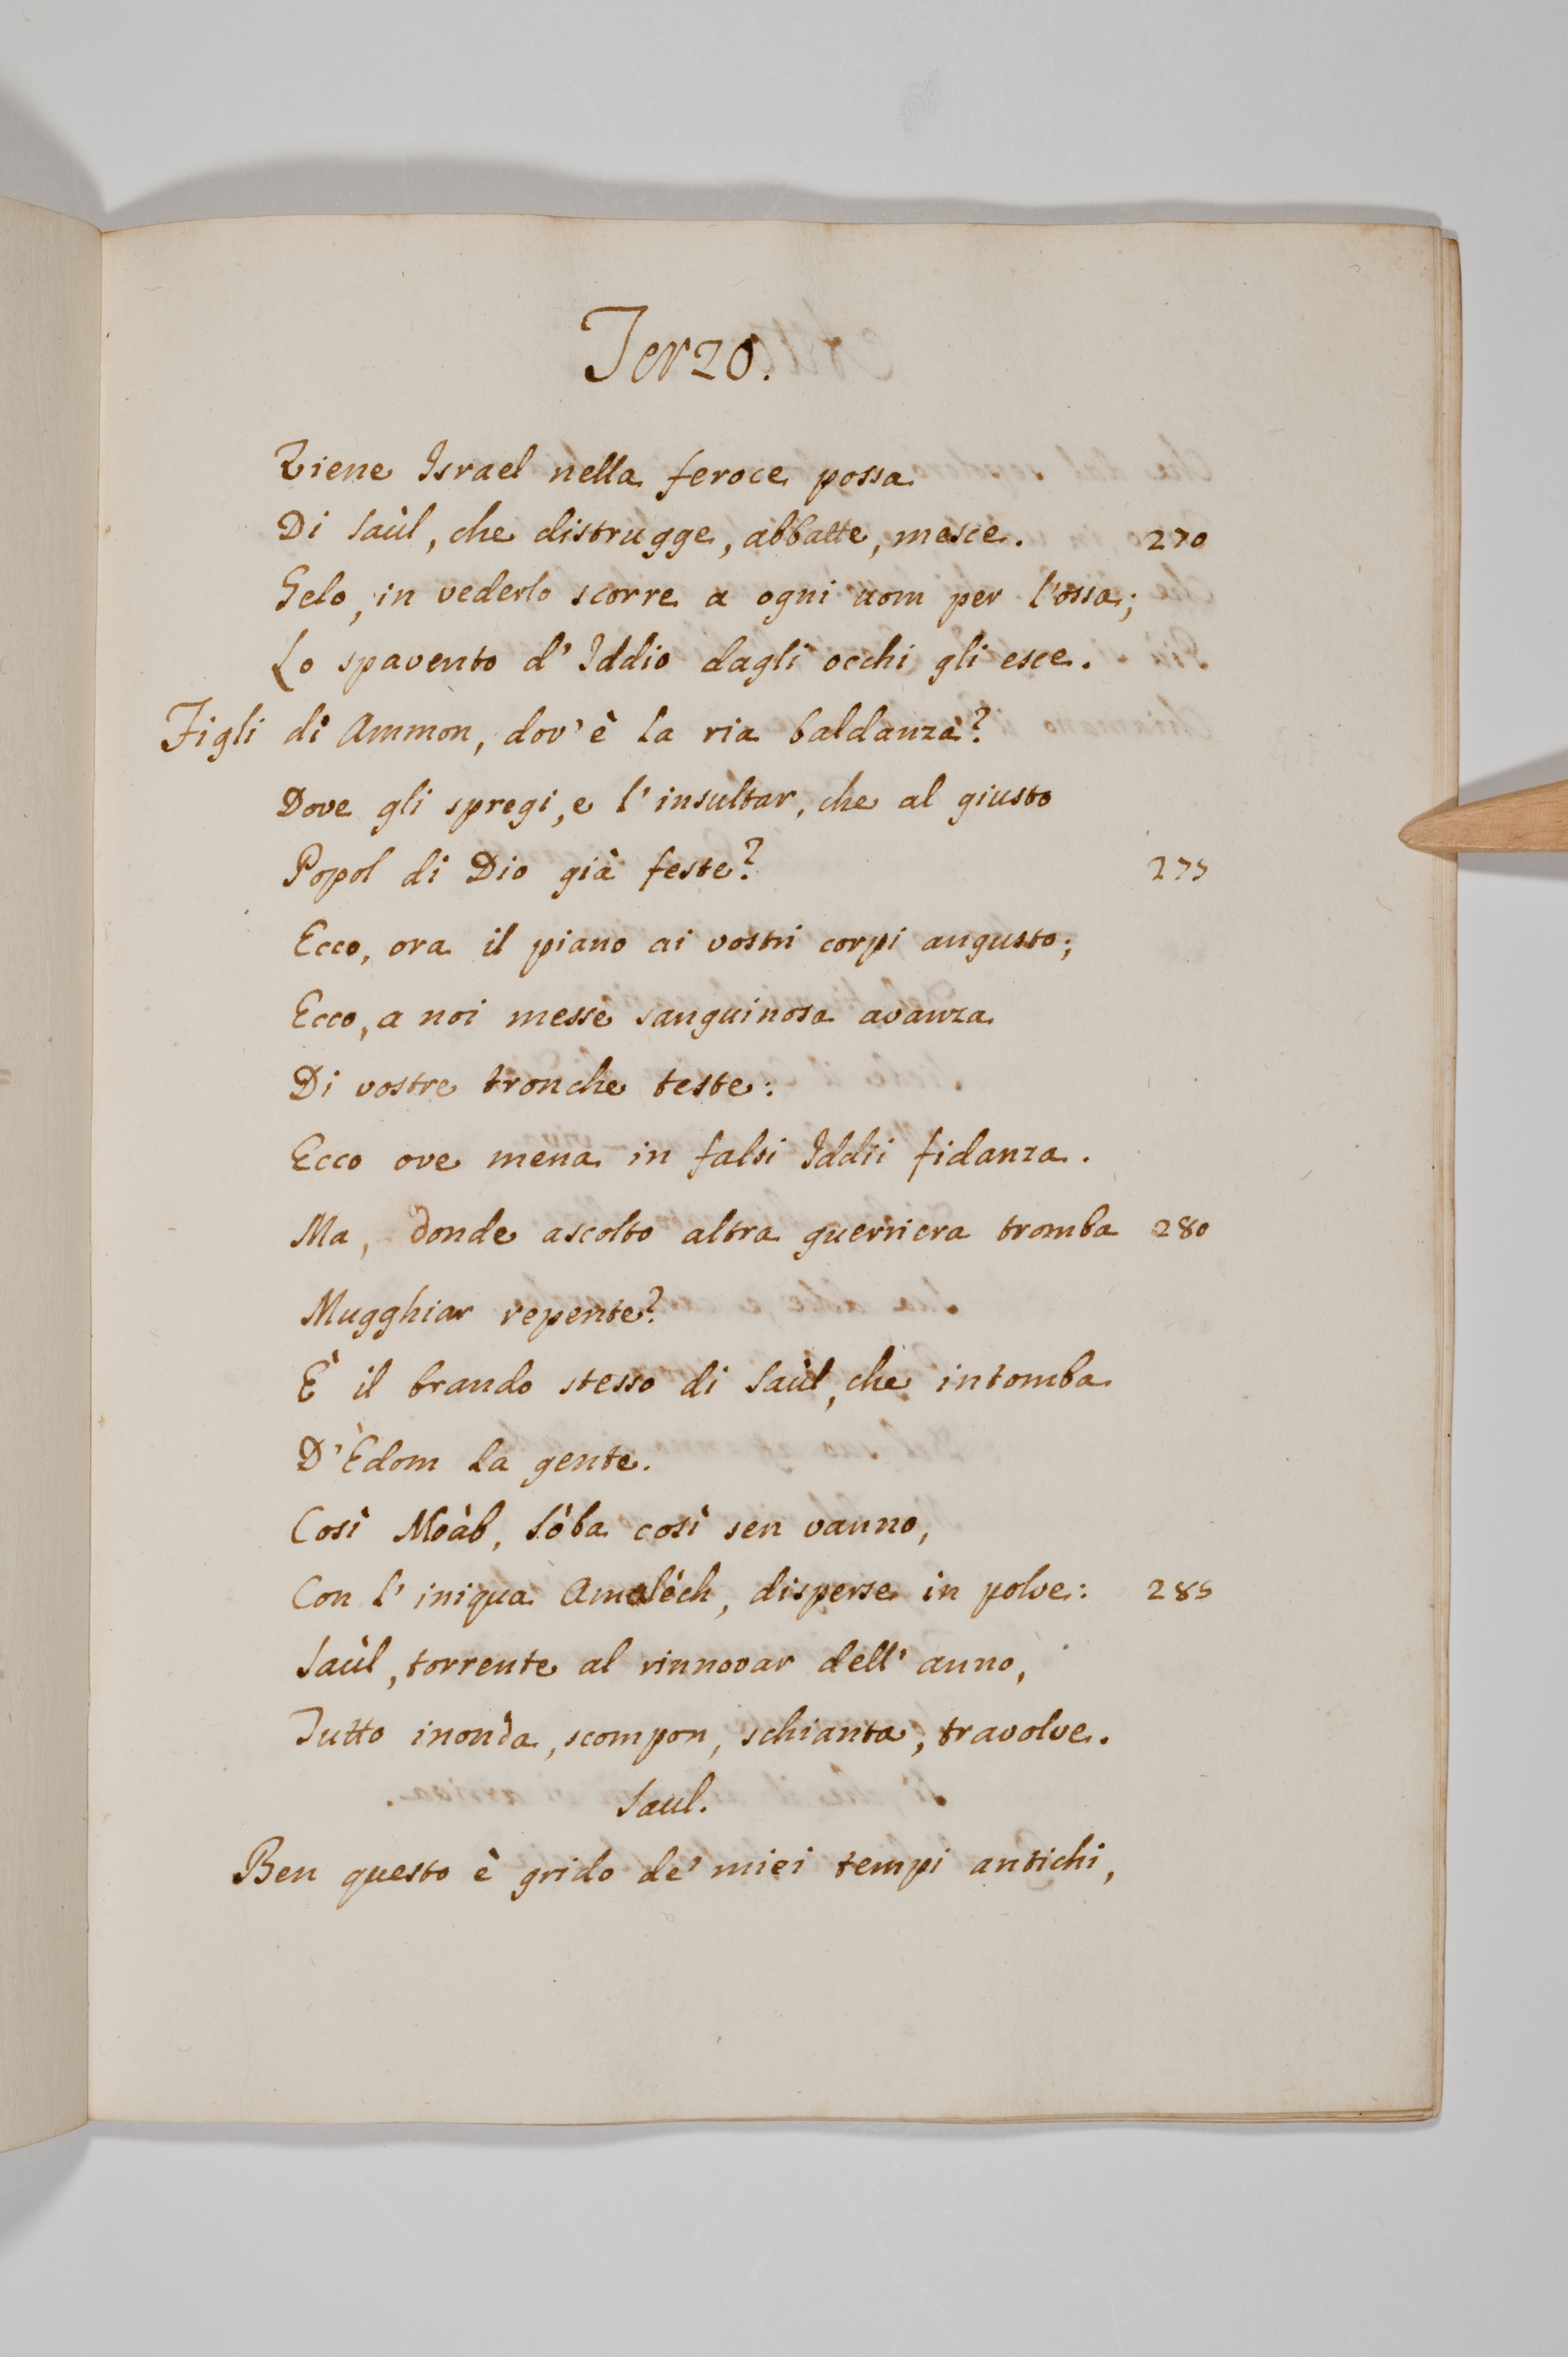 Terzo.
Viene Israel nella feroce possa
Di Saùl, che distrugge, abbatte, mesce. 270
Gelo, in vederlo scorre a ogni uom per l'ossa;
Lo spavento d'Iddio dagli occhi gli esce.
Figli di Ammon, dov'è la ria baldanza?
Dove gli spregi, e l'insultar, che al giusto
Popol di Dio già feste? 275
Ecco, ora il piano ai vostri corpi angusto;
Ecco, a noi messe sanguinosa avanza
Di vostre tronche teste:
Ecco ove mena in falsi Iddii fidanza.
Ma, donde ascolto altra guerriera tromba 280
Mugghiar repente?
È il brando stesso di Saùl, che intomba
D'Èdom la gente.
Così Moàb, Sòba così sen vanno,
Con l'iniqua Amalèch, disperse in polve: 285
Saùl, torrente al rinnovar dell'anno,
Tutto inonda, scompon, schianta, travolve.
Saul.
Ben questo è grido de' miei tempi antichi,